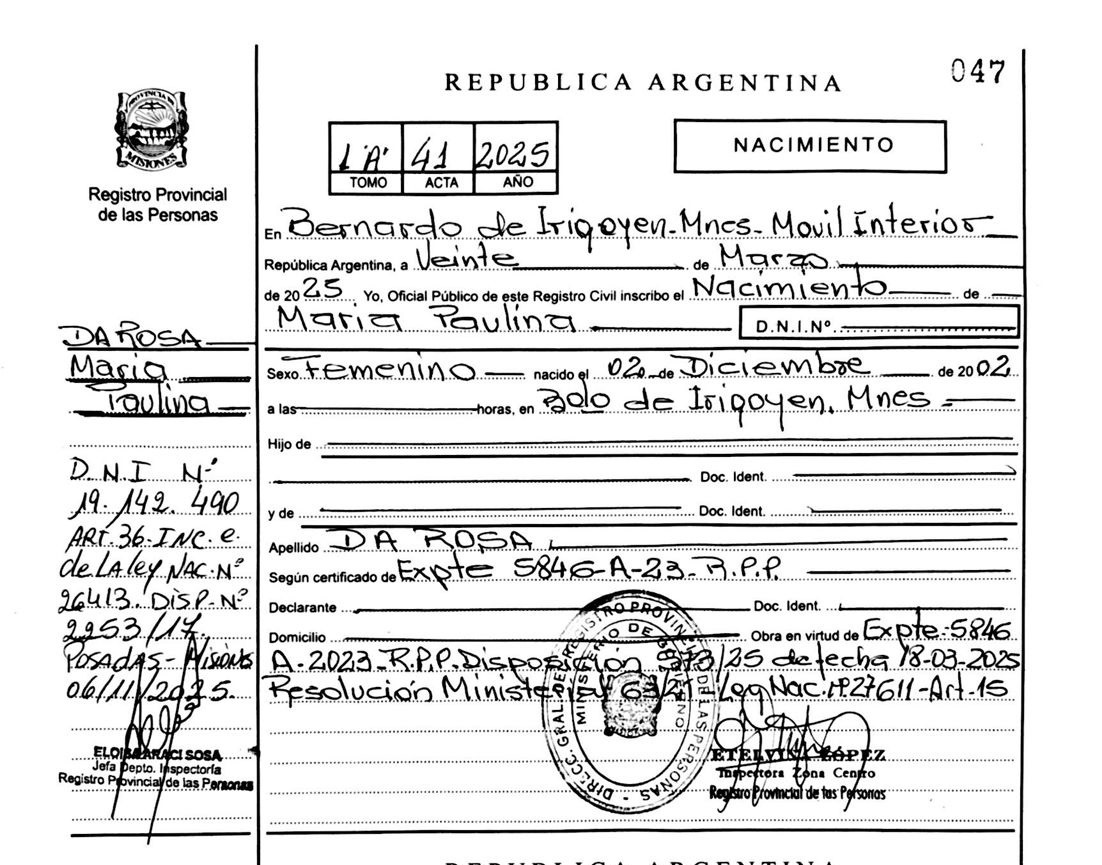 047
REPUBLICA ARGENTINA
PROVINCIA DE
MISIONES
Registro Provincial
de las Personas
1"A" 41 2025
TOMO ACTA AÑO
NACIMIENTO
En Bernardo de Irigoyen-Mnes- Movil Interior
República Argentina, a Veinte de Marzo
de 2025 Yo, Oficial Público de este Registro Civil inscribo el Nacimiento de
Maria Paulina D.N.I.Nº
Sexo Femenino nacido el 02 de Diciembre de 2002
a las horas, en Bdo de Irigoyen, Mnes =
Hijo de
Doc. Ident.
y de Doc. Ident.
Apellido DA ROSA
Según certificado de Expte 5846-A-23-R.P.P.
Declarante Doc. Ident.
Domicilio Obra en virtud de Expte-5846
A-2023-R.P.P. Disposición /25 de fecha 18-03-2025
Resolución Ministerial Ley Nac. Nº27611-Art-15
DIRECC. GRAL. DE REGISTRO PROVINCIAL DE LAS PERSONAS
MINISTERIO DE GOBIERNO
ETELVINA LÓPEZ
Inspectora Zona Centro
Registro Provincial de las Personas
DA ROSA
Maria
Paulina
D.N.I Nº
19.142.490
ART.36-INC.e.
de LA ley NAC.Nº
26413. DISP-Nº
2253/17.
POSADAS-Misiones
06/11/2025.
ELOISA ARACI SOSA
Jefa Depto. Inspectoría
Registro Provincial de las Personas
REPUBLICA ARGENTINA